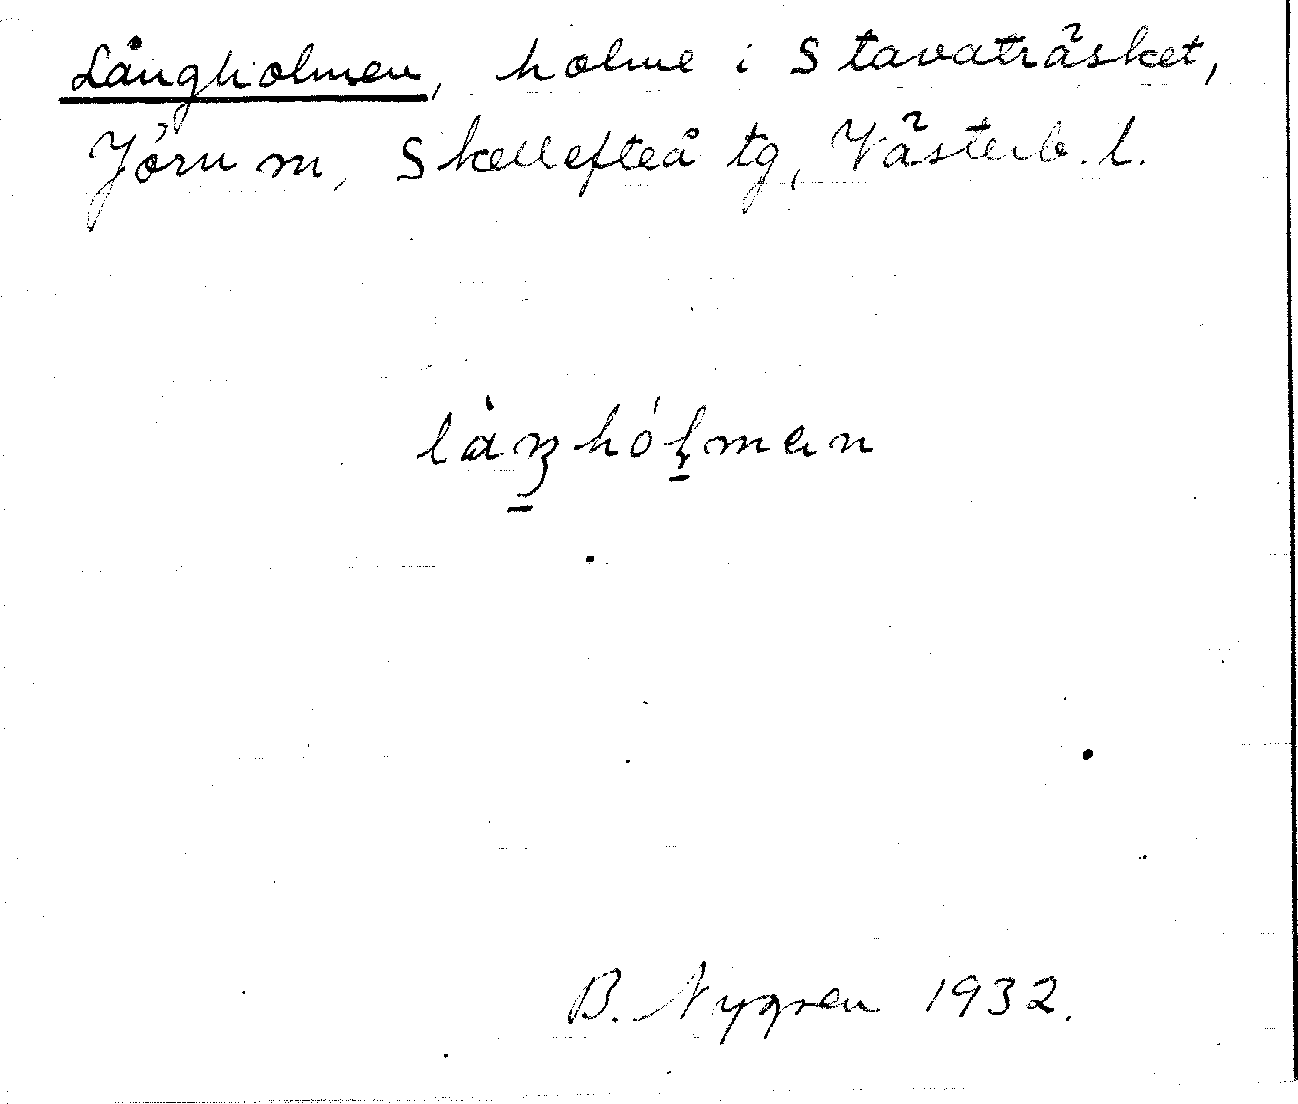 Långholmen, holme i Stavaträsket,
Jörn m, Skellefteå tg, Västerb. l.
làŋhóɭman
B. Nygren 1932.